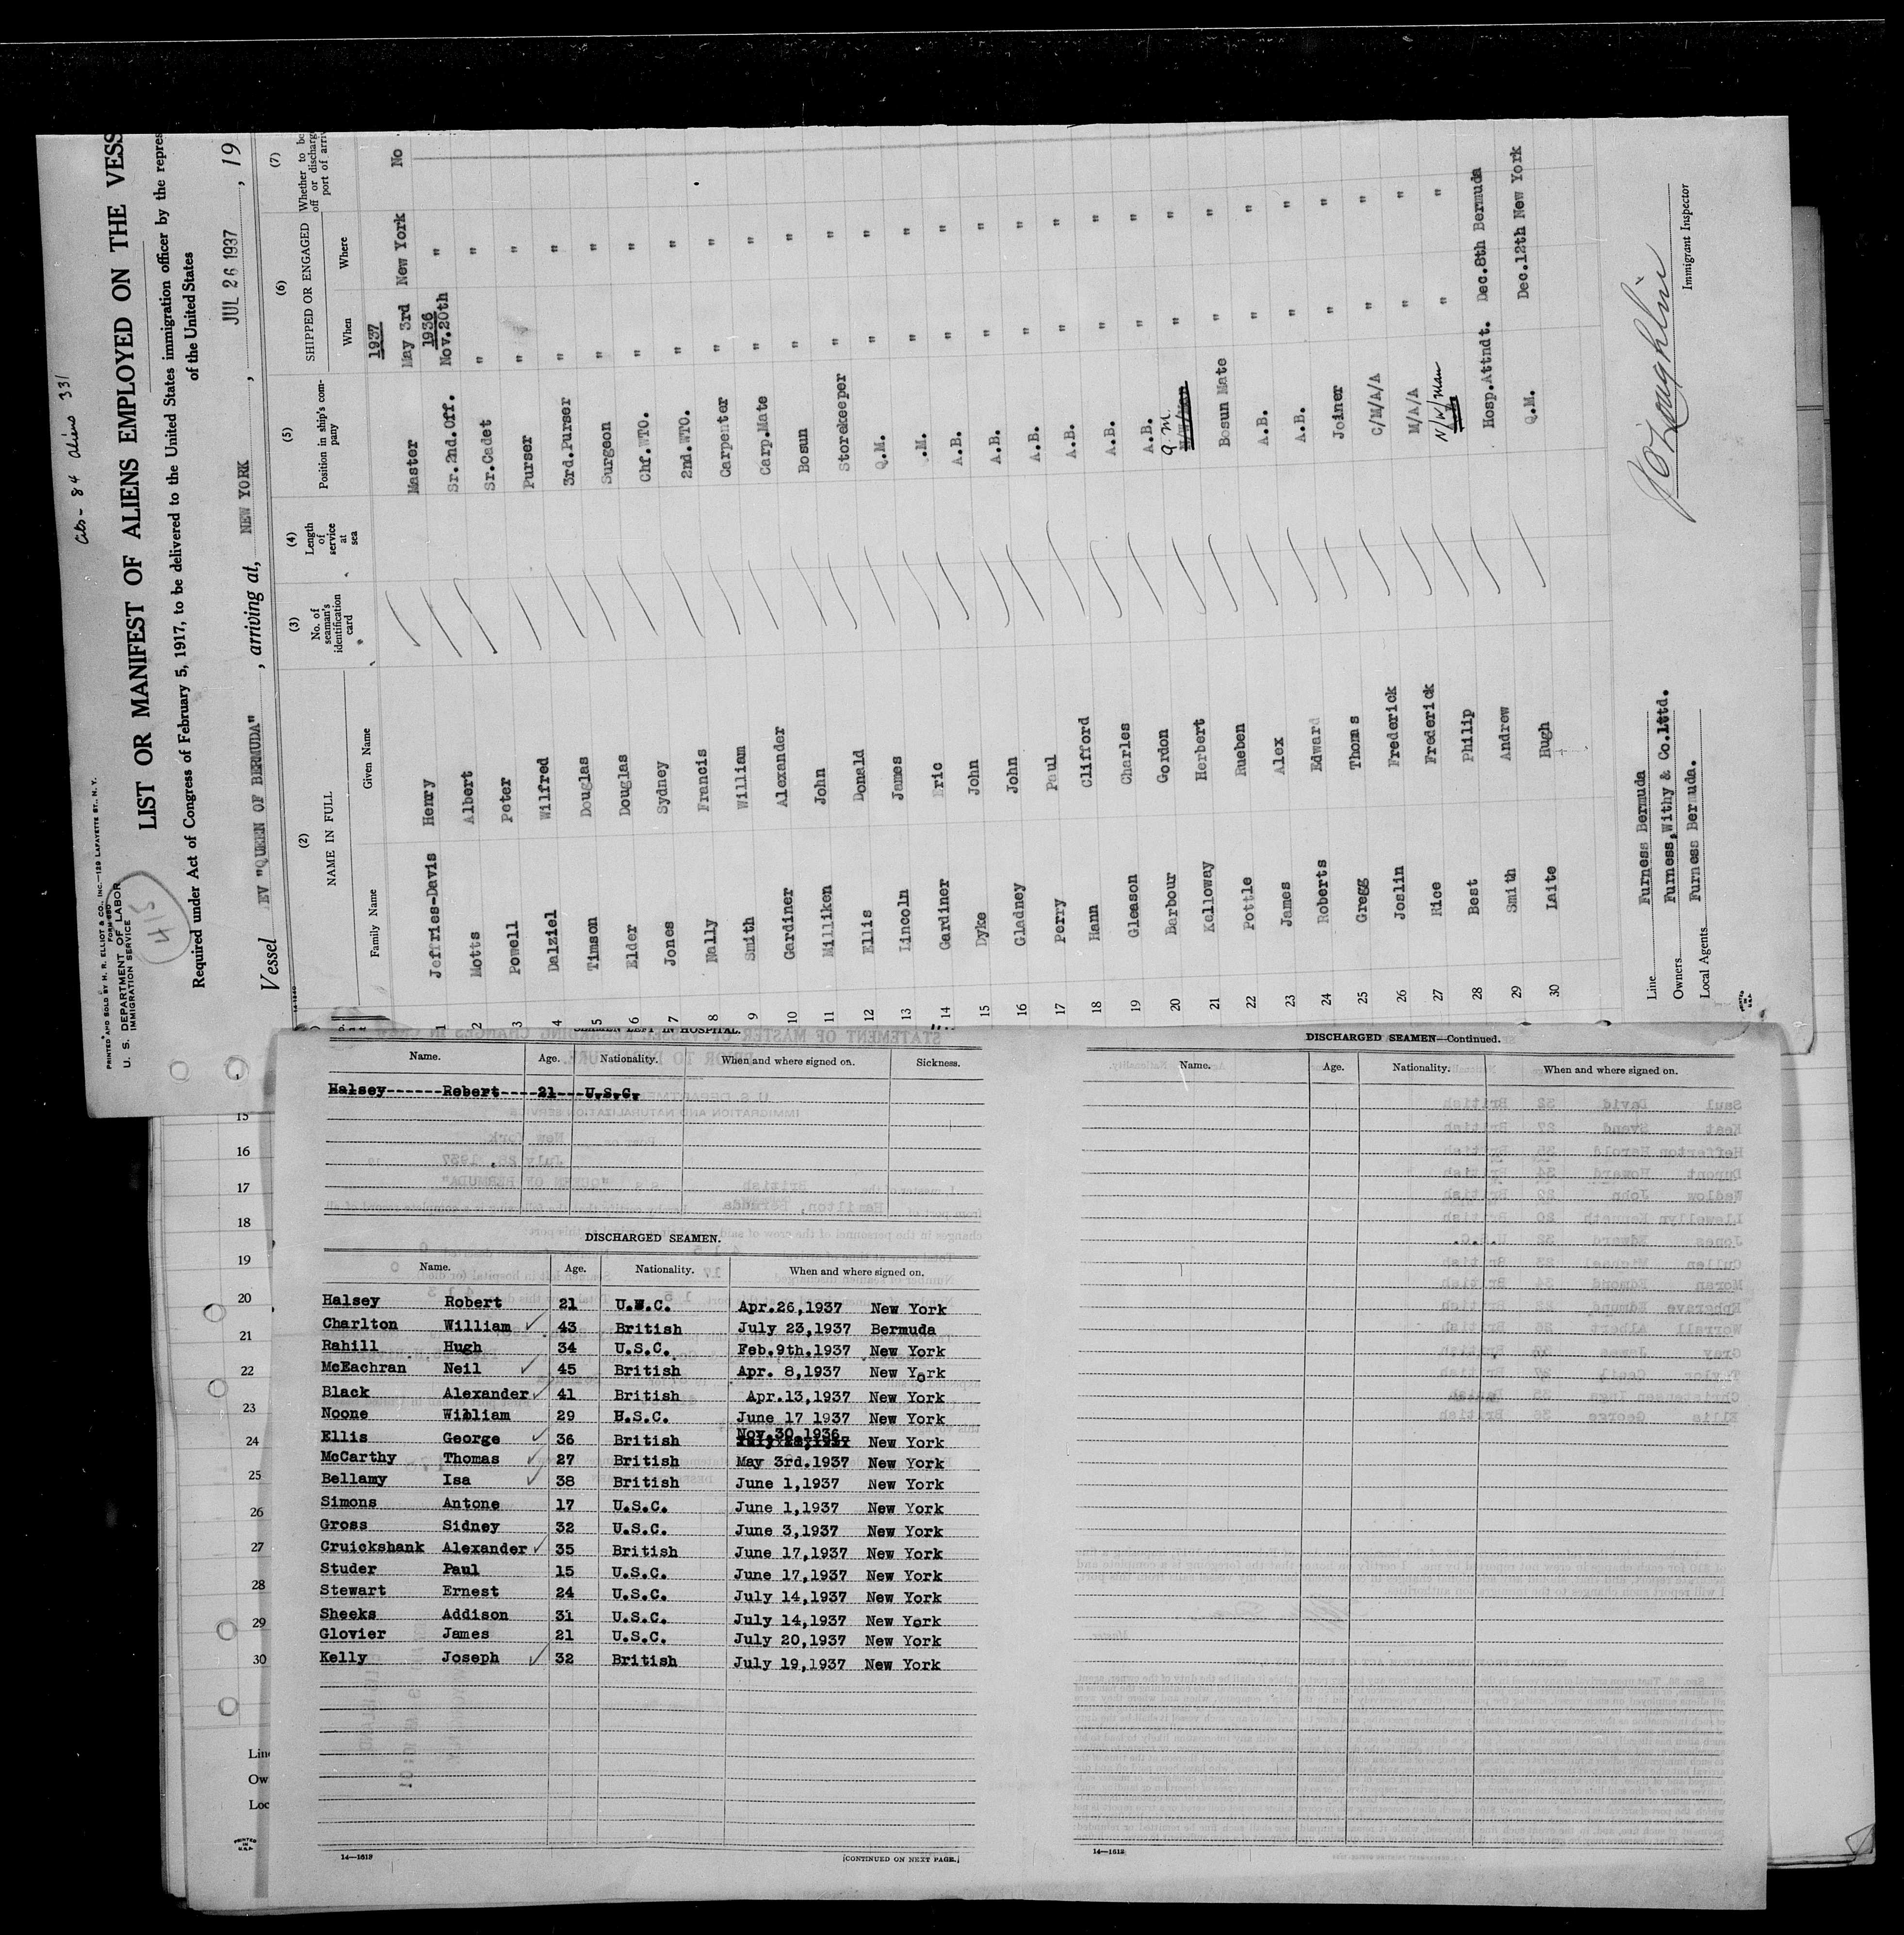 Cits - 84 Aliens 331
PRINTED AND SOLD BY H. R. ELLIOT & CO., INC.—129 LAFAYETTE ST., N. Y.
U. S. DEPARTMENT OF LABOR
IMMIGRATION SERVICE
415
LIST OR MANIFEST OF ALIENS EMPLOYED ON THE VESS
Required under Act of Congress of February 5, 1917, to be delivered to the United States immigration officer by the repres
of the United States
Vessel EV "QUEEN OF BERMUDA" , arriving at, NEW YORK , JUL 26 1937 , 19
(2) (3) (4) (5) (6) (7)
NAME IN FULL
Family Name Given Name
No. of seaman's identification card
Length of service at sea
Position in ship's company
SHIPPED OR ENGAGED
When Where
Whether to be
off or discharg
port of arriv
1937
1 Jeffries-Davis Henry Master May 3rd New York No
1936
2 Motts Albert Sr.2nd.Off. Nov.20th "
3 Powell Peter Sr.Cadet " "
4 Dalziel Wilfred Purser " "
5 Timson Douglas 3rd.Purser " "
6 Elder Douglas Surgeon " "
7 Jones Sydney Chf.WTO. " "
8 Nally Francis 2nd.WTO. " "
9 Smith William Carpenter " "
10 Gardiner Alexander Carp.Mate " "
11 Milliken John Bosun " "
12 Ellis Donald Storekeeper " "
13 Lincoln James Q.M. " "
14 Gardiner Eric .M. " "
15 Dyke John A.B. " "
16 Gladney John A.B. " "
17 Perry Paul A.B. " "
18 Hann Clifford A.B. " "
19 Gleason Charles A.B. " "
20 Barbour Gordon A.B. " "
21 Kelloway Herbert Q.M. " "
22 Pottle Rueben Bosun Mate " "
23 James Alex A.B. " "
24 Roberts Edward A.B. " "
25 Gregg Thomas Joiner " "
26 Joslin Frederick C/M/A/A " "
27 Rice Frederick M/A/A " "
28 Best Philip N/W/Man " "
29 Smith Andrew Hosp.Attndt. Dec.8th Bermuda
30 Laite Hugh Q.M. Dec.12th New York
Line Furness Bermuda
Owners Furness,Withy & Co.Lttd.
Local Agents Furness Bermuda.
Immigrant Inspector
PRINTED IN U.S.A.
SEAMEN LEFT IN HOSPITAL.
Name. Age. Nationality. When and where signed on. Sickness.
Halsey------Robert----21---U.S.C.
DISCHARGED SEAMEN.
Name. Age. Nationality. When and where signed on.
Halsey Robert 21 U.S.C. Apr.26,1937 New York
Charlton William 43 British July 23,1937 Bermuda
Rahill Hugh 34 U.S.C. Feb.9th.1937 New York
McEachran Neil 45 British Apr. 8,1937 New York
Black Alexander 41 British Apr.13,1937 New York
Noone William 29 U.S.C. June 17 1937 New York
Ellis George 36 British Nov.30,1936 New York
McCarthy Thomas 27 British May 3rd.1937 New York
Bellamy Isa 38 British June 1,1937 New York
Simons Antone 17 U.S.C. June 1,1937 New York
Gross Sidney 32 U.S.C. June 3,1937 New York
Cruickshank Alexander 35 British June 17,1937 New York
Studer Paul 15 U.S.C. June 17,1937 New York
Stewart Ernest 24 U.S.C. July 14,1937 New York
Sheeks Addison 31 U.S.C. July 14,1937 New York
Glovier James 21 U.S.C. July 20,1937 New York
Kelly Joseph 32 British July 19,1937 New York
14—1613
[CONTINUED ON NEXT PAGE.]
DISCHARGED SEAMEN—Continued.
Name. Age. Nationality. When and where signed on.
14—1613
15
16
17
18
19
20
21
22
23
24
25
26
27
28
29
30
Line
Ow
Loc
PRINTED IN U.S.A.